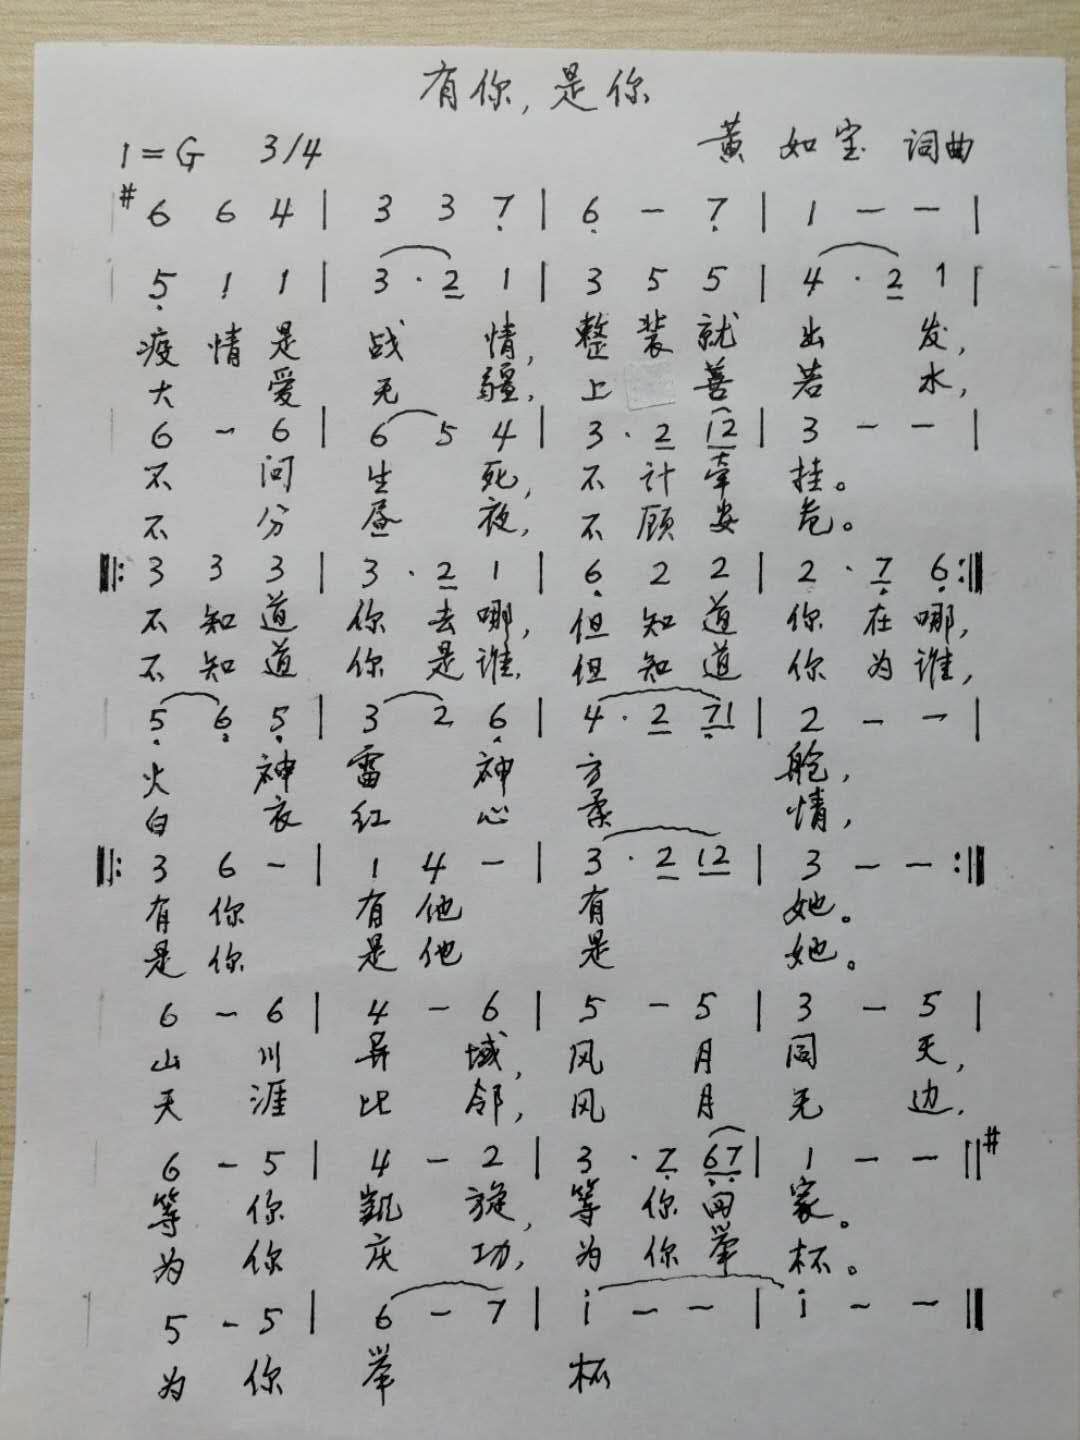 有你,是你
1=G 3/4 黄如宝 词曲
# 6 6 4 | 3 3 7̣ | 6̣ - 7̣ | 1 - - |
5̣ 1 1 | 3 · 2 1 | 3 5 5 | 4 · 2 1 |
疫情是 战 情, 整装就 出 发,
大 爱 无 疆, 上 善 若 水,
6 - 6 | 6 5 4 | 3 · 2 12 | 3 - - |
不 问 生 死, 不计牵 挂。
不 分 昼 夜, 不顾安 危。
‖: 3 3 3 | 3 · 2 1 | 6̣ 2 2 | 2 · 7̣ 6̣ :‖
不知道 你去哪, 但知道 你在哪,
不知道 你是谁, 但知道 你为谁,
5̣ 6̣ 5̣ | 3 2 6̣ | 4 · 2 7̣1 | 2 - - |
火 神 雷 神 方 舱,
白 衣 红 心 柔 情,
‖: 3 6 - | 1 4 - | 3 · 2 12 | 3 - - :‖
有你 有他 有 她。
是你 是他 是 她。
6 - 6 | 4 - 6 | 5 - 5 | 3 - 5 |
山 川 异 域, 风 月 同 天,
天 涯 比 邻, 风 月 无 边.
6 - 5 | 4 - 2 | 3 · 7̣ 6̣7̣ | 1 - - ‖ #
等 你 凯 旋, 等你回 家。
为 你 庆 功, 为你举 杯。
5 - 5 | 6 - 7 | i - - | i - - ‖
为 你 举 杯